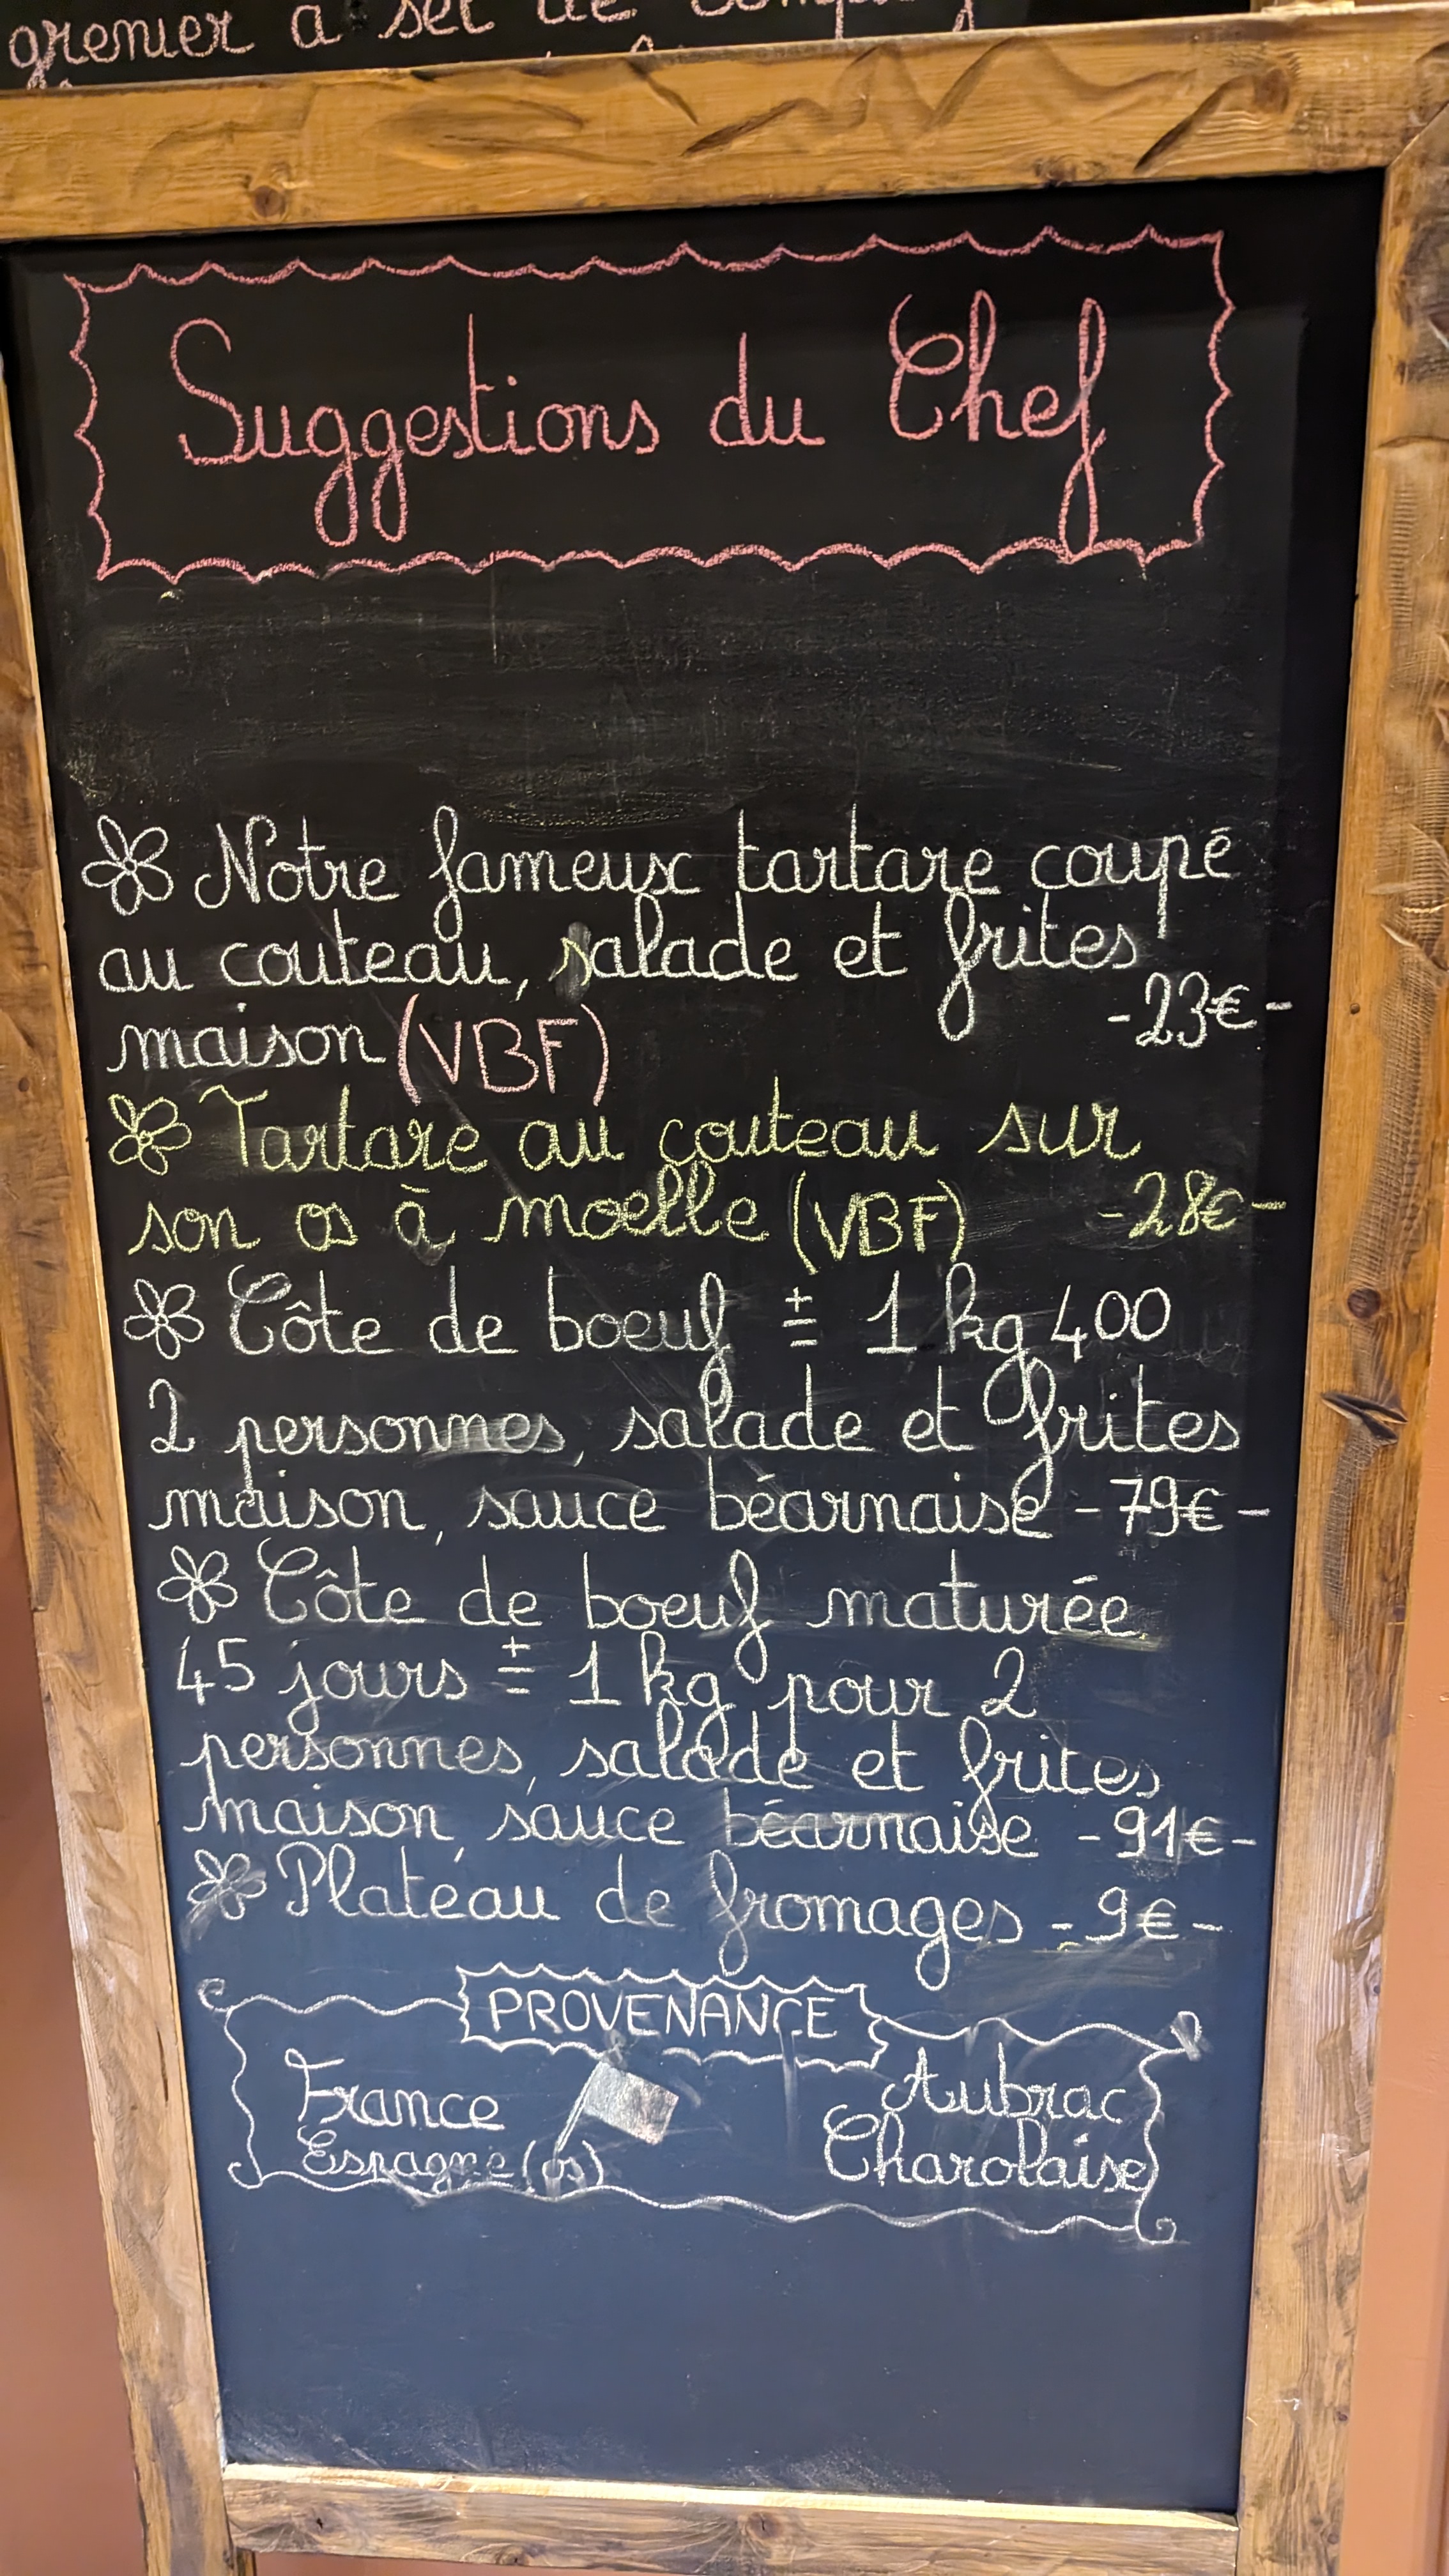 grenier à sel de
Suggestions du Chef
Notre fameux tartare coupé
au couteau, salade et frites
-23€-
maison (VBF)
Tartare au couteau sur
son os à moelle (VBF) -28€-
Côte de boeuf ± 1 kg 400
2 personnes, salade et frites
maison, sauce béarnaise -79€-
Côte de boeuf maturée
45 jours ± 1 kg pour 2
personnes, salade et frites
maison, sauce béarnaise -91€-
Plateau de fromages -9€-
PROVENANCE
France Aubrac
Espagne (os) Charolaise